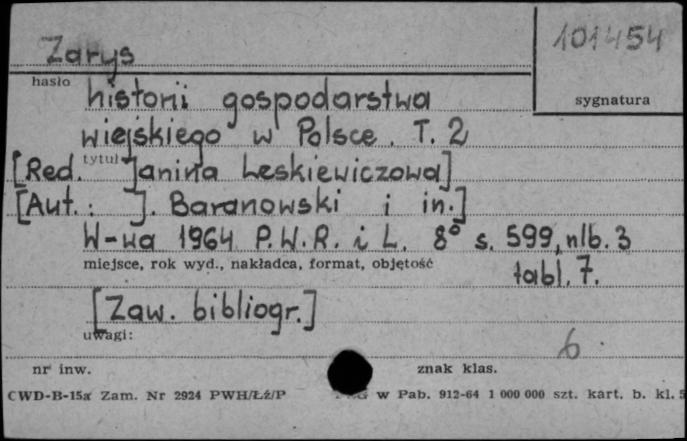 Zarys
101454
hasło
sygnatura
historii gospodarstwa
wiejskiego w Polsce. T. 2
tytuł
[Red. Janina Leskiewiczowa]
[Aut.: J. Baranowski i in.]
W-wa 1964 P.W.R. i L. 8° s. 599, nlb. 3
miejsce, rok wyd., nakładca, format, objętość
tabl. 7.
[Zaw. bibliogr.]
uwagi:
6
nr inw.
znak klas.
CWD-B-15a Zam. Nr 2924 PWH/Łż/P
w Pab. 912-64 1 000 000 szt. kart. b. kl. 5